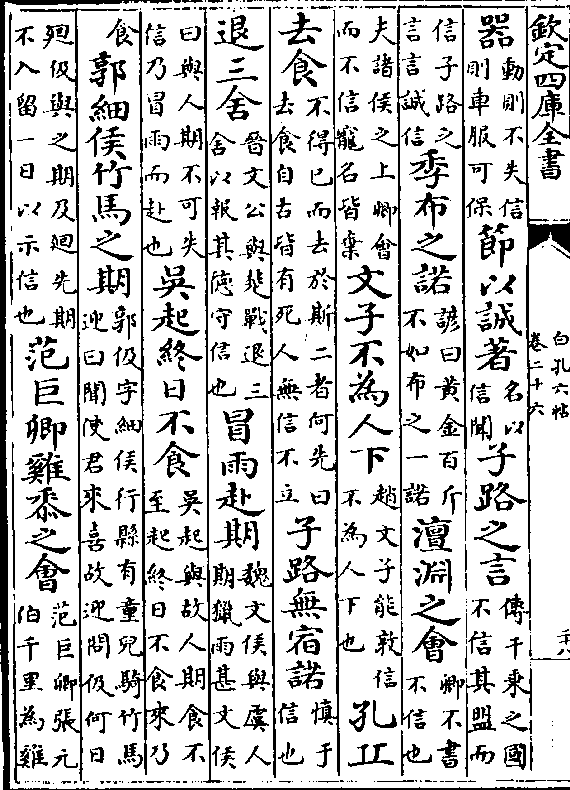 欽定四庫全書
白孔六帖
卷二十六
器動則不失信則車服可保節以誠著名以信聞子路之言傳千乘之國不信其盟而
信子路之言言誠信季布之諾諺曰黃金百斤不如布之一諾澶淵之會卿不書不信也
夫諸侯之上卿會而不信寵名皆棄文子不為人下趙文子能敦信不為人下也孔丘
去食不得已而去於斯二者何先曰去食自古皆有死人無信不立子路無宿諾慎于信也
退三舍晉文公與楚戰退三舍以報其德守信也冒雨赴期魏文侯與虞人期獵雨甚文侯
曰與人期不可失信乃冒雨而赴也吳起終日不食吳起與故人期食不至起終日不食來乃
食郭細侯竹馬之期郭伋字細侯行縣有童兒騎竹馬迎曰聞使君來喜故迎問伋何日
廻伋與之期及廻先期不入留一日以示信也范巨卿雞黍之會范巨卿張元伯千里為雞